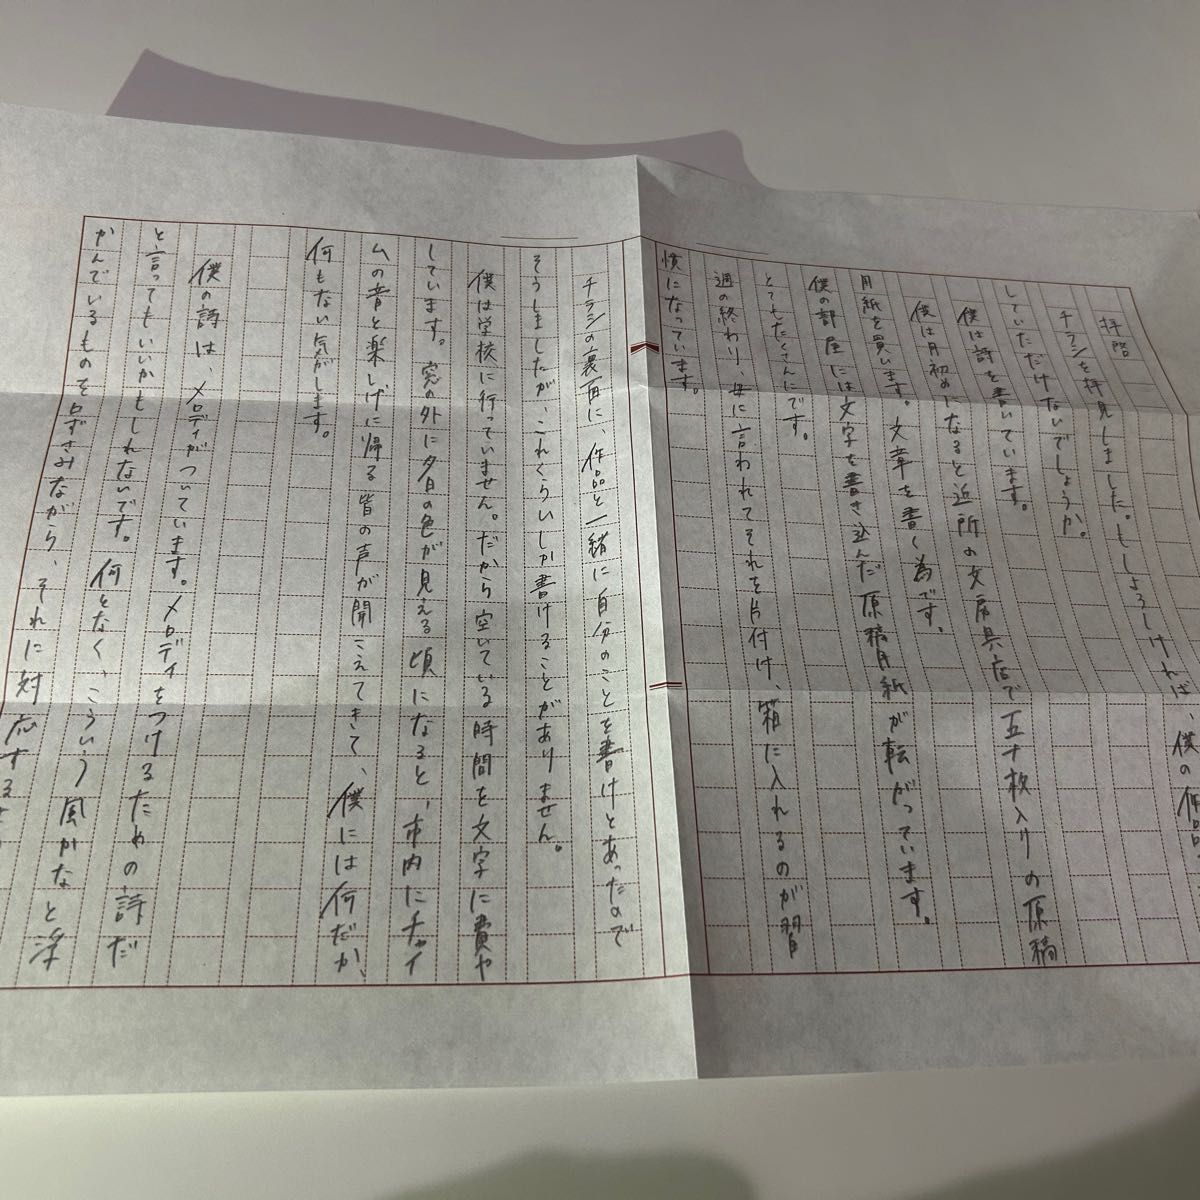 拝啓
チラシを拝見しました。もしよろしければ、僕の作品
していただけないでしょうか。
僕は詩を書いています。
僕は月初めになると近所の文房具店で五十枚入りの原稿
用紙を買います。文章を書く為です。
僕の部屋には文字を書き込んだ原稿用紙が転がっています。
とてもたくさんにです。
週の終わり、母に言われてそれを片付け、箱に入れるのが習
慣になっています。
チラシの裏面に、作品と一緒に自分のことを書けとあったので
そうしましたが、これくらいしか書けることがありません。
僕は学校に行っていません。だから空いている時間を文字に費や
しています。窓の外に夕日の色が見える頃になると、市内にチャイ
ムの音と楽しげに帰る皆の声が聞こえてきて、僕には何だか、
何もない気がします。
僕の詩は、メロディがついています。メロディをつけるための詩だ
と言ってもいいかもしれないです。何となく、こういう風かなと浮
かんでいるものを口ずさみながら、それに対応する